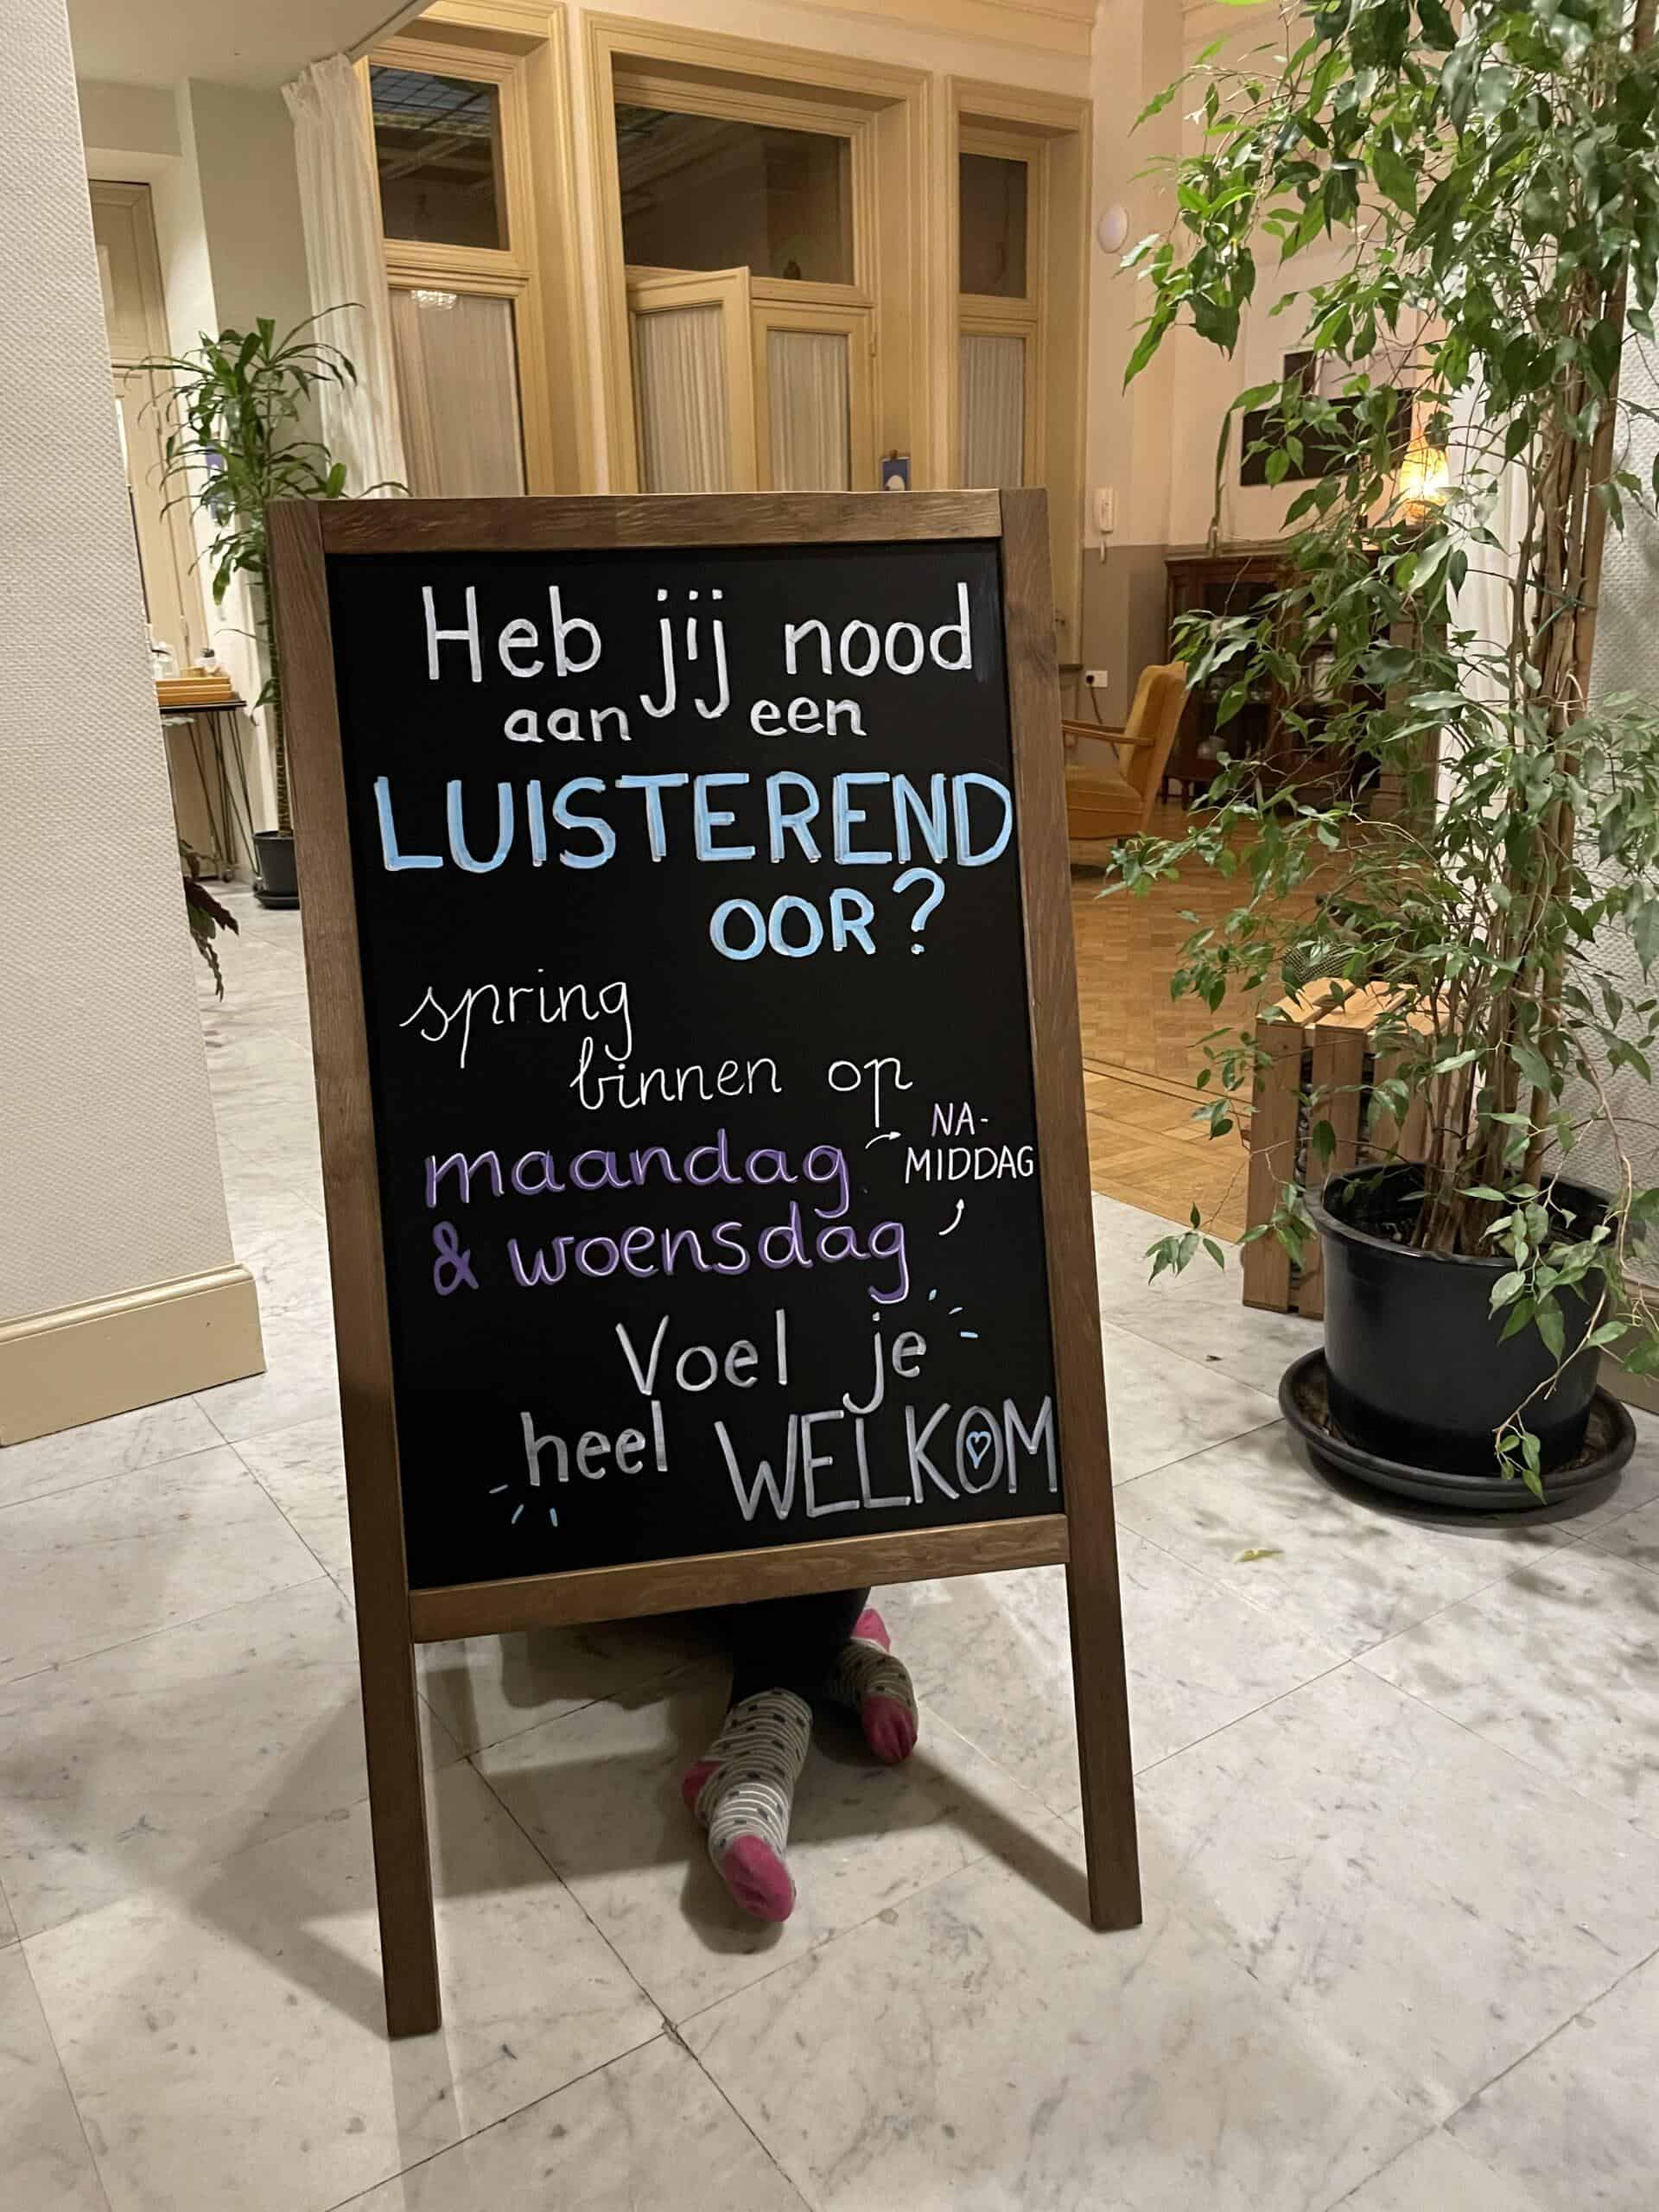 Heb jij nood
aan een
LUISTEREND
OOR?
spring
binnen op
maandag
& woensdag
NA-
MIDDAG
Voel je
heel WELKOM